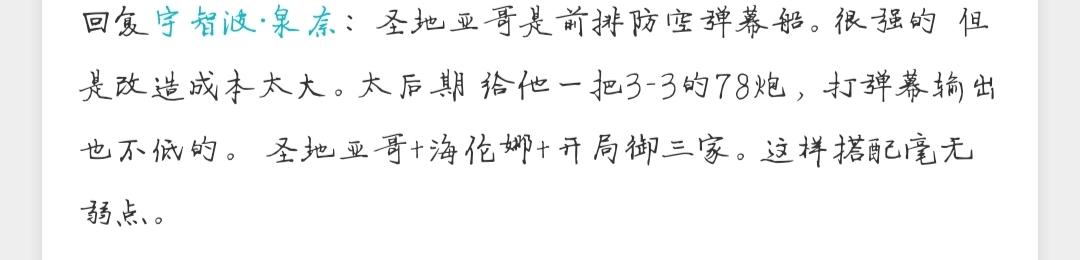 回复宇智波·泉奈：圣地亚哥是前排防空弹幕船。很强的 但
是改造成本太大。太后期给他一把3-3的78炮，打弹幕输出
也不低的。 圣地亚哥+海伦娜+开局御三家。这样搭配毫无
弱点。